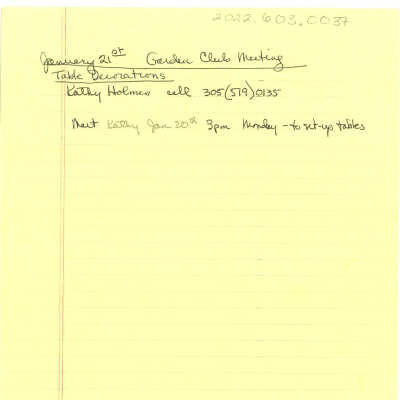 2022.603.0037
January 21st Garden Club Meeting
Table Decorations
Kathy Holmes cell 305(519)0135
Meet Kathy Jan 20th 3pm Monday - to set-up tables